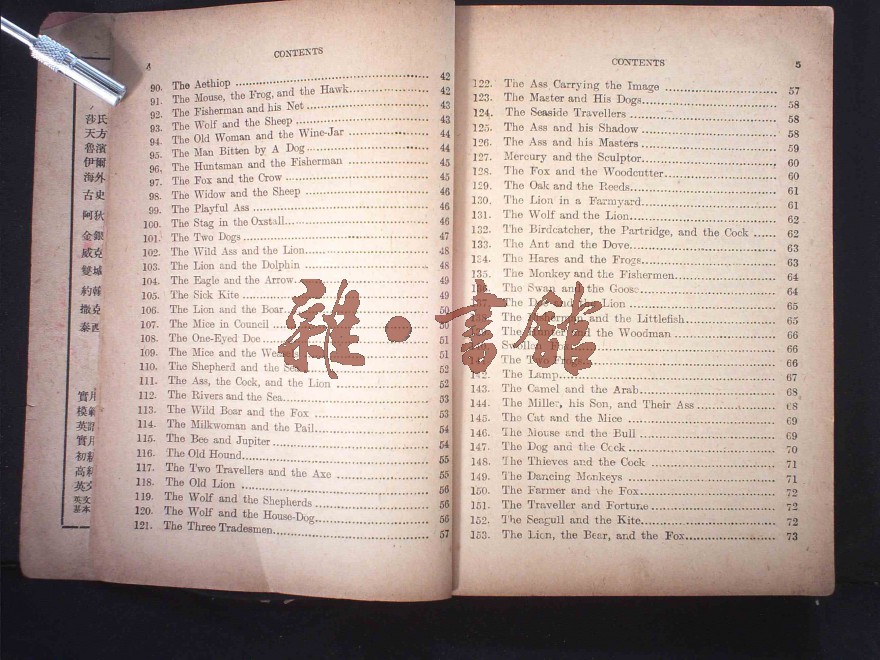 莎氏
天方
魯濱
伊爾
海外
古史
阿狄
金銀
威克
雙城
約翰
撒克
泰西
實用
模範
英語
實用
初級
高級
英文
英文
基本
4 CONTENTS
90. The Aethiop 42
91. The Mouse, the Frog, and the Hawk 42
92. The Fisherman and his Net 43
93. The Wolf and the Sheep 43
94. The Old Woman and the Wine-Jar 44
95. The Man Bitten by A Dog 44
96. The Huntsman and the Fisherman 45
97. The Fox and the Crow 45
98. The Widow and the Sheep 46
99. The Playful Ass 46
100. The Stag in the Oxstall 46
101. The Two Dogs 47
102. The Wild Ass and the Lion 48
103. The Lion and the Dolphin 48
104. The Eagle and the Arrow 49
105. The Sick Kite 49
106. The Lion and the Boar 50
107. The Mice in Council 50
108. The One-Eyed Doe 51
109. The Mice and the 51
110. The Shepherd and the Sea 52
111. The Ass, the Cock, and the Lion 52
112. The Rivers and the Sea 53
113. The Wild Boar and the Fox 53
114. The Milkwoman and the Pail 54
115. The Bee and Jupiter 54
116. The Old Hound 55
117. The Two Travellers and the Axe 55
118. The Old Lion 56
119. The Wolf and the Shepherds 56
120. The Wolf and the House-Dog 56
121. The Three Tradesmen 57
CONTENTS 5
122. The Ass Carrying the Image 57
123. The Master and His Dogs 58
124. The Seaside Travellers 58
125. The Ass and his Shadow 58
126. The Ass and his Masters 59
127. Mercury and the Sculptor 60
128. The Fox and the Woodcutter 60
129. The Oak and the Reeds 61
130. The Lion in a Farmyard 61
131. The Wolf and the Lion 62
132. The Birdcatcher, the Partridge, and the Cock 62
133. The Ant and the Dove 63
134. The Hares and the Frogs 63
135. The Monkey and the Fishermen 64
136. The Swan and the Goose 64
137. The and the Lion 65
138. The Fisherman and the Littlefish 65
139. The Hunter and the Woodman 66
Swollen 66
141. The Two Frogs 66
142. The Lamp 67
143. The Camel and the Arab 68
144. The Miller, his Son, and Their Ass 68
145. The Cat and the Mice 69
146. The Mouse and the Bull 69
147. The Dog and the Cock 70
148. The Thieves and the Cock 71
149. The Dancing Monkeys 71
150. The Farmer and the Fox 72
151. The Traveller and Fortune 72
152. The Seagull and the Kite 72
153. The Lion, the Bear, and the Fox 73
雜·書館